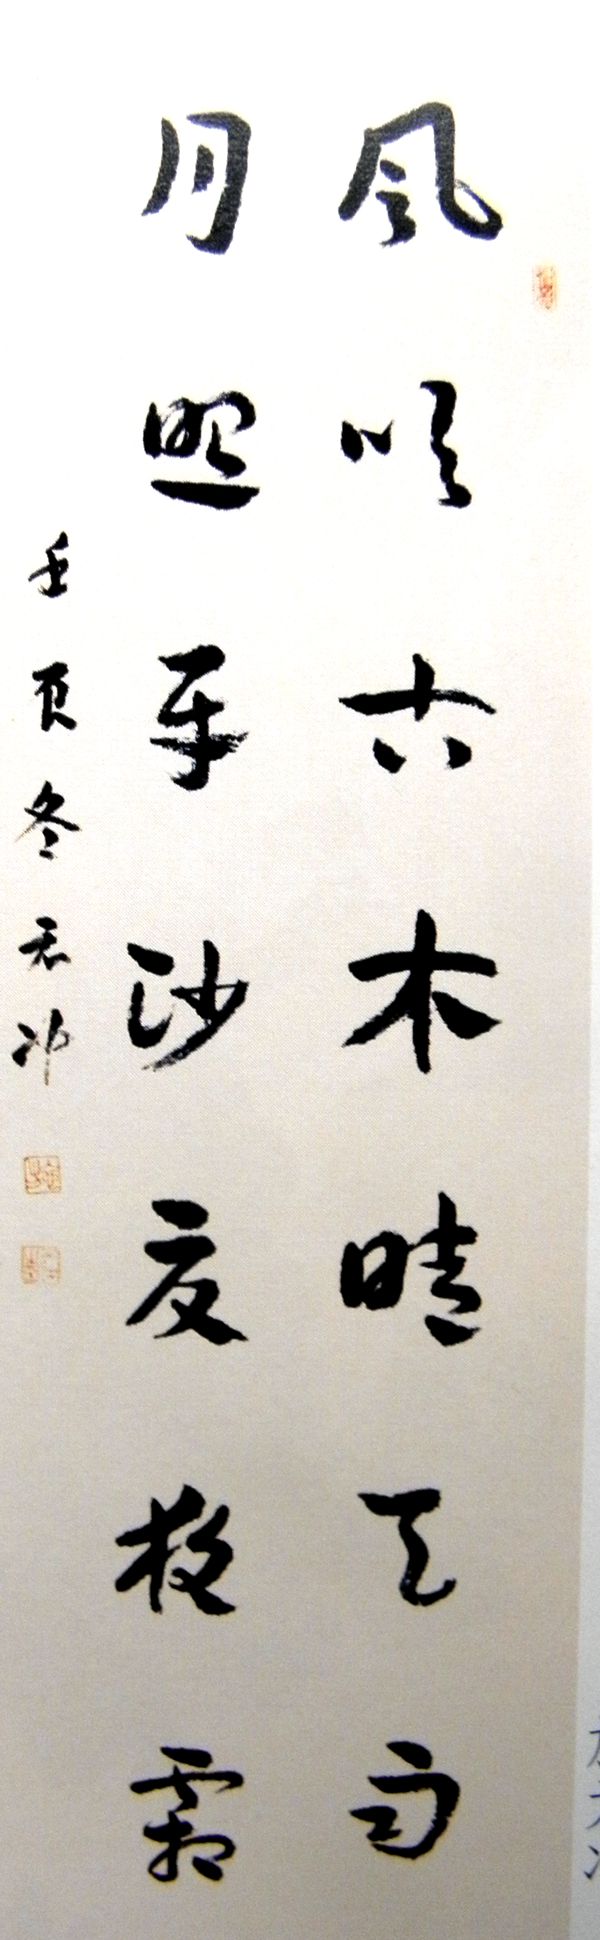 風吹古木晴天雨
月照平沙夏夜霜
壬寅冬